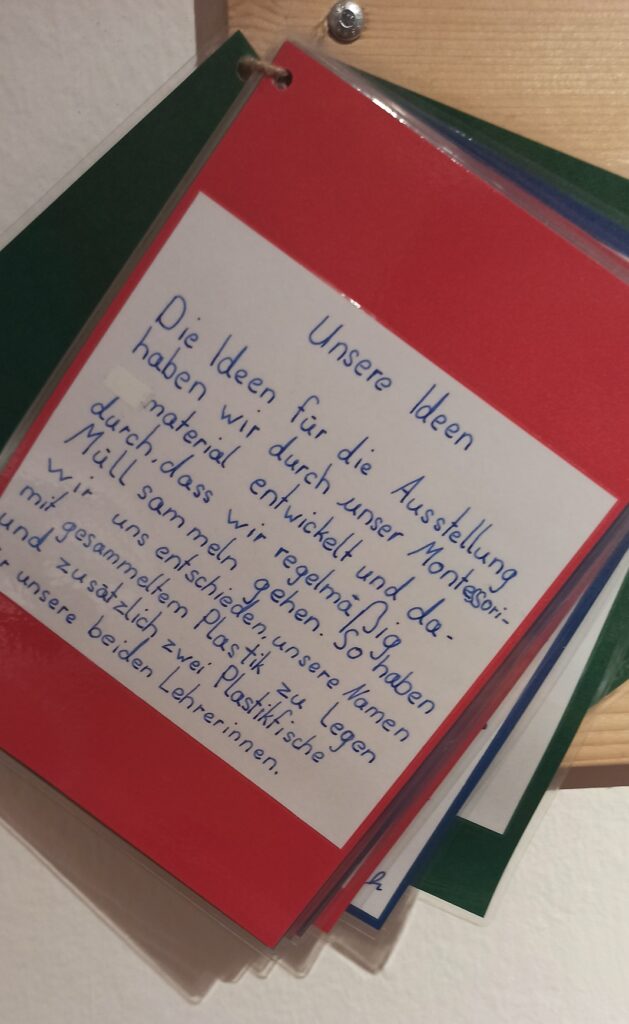 Unsere Ideen
Die Ideen für die Ausstellung
haben wir durch unser Montessori-
material entwickelt und da-
durch, dass wir regelmäßig
Müll sammeln gehen. So haben
wir uns entschieden, unsere Namen
mit gesammeltem Plastik zu legen
und zusätzlich zwei Plastikfische
unsere beiden Lehrerinnen.